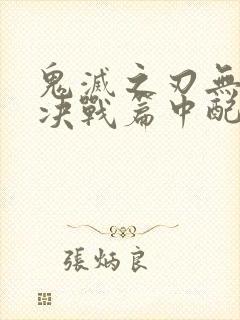 鬼滅之刃無
決戰篇中配
張炳良